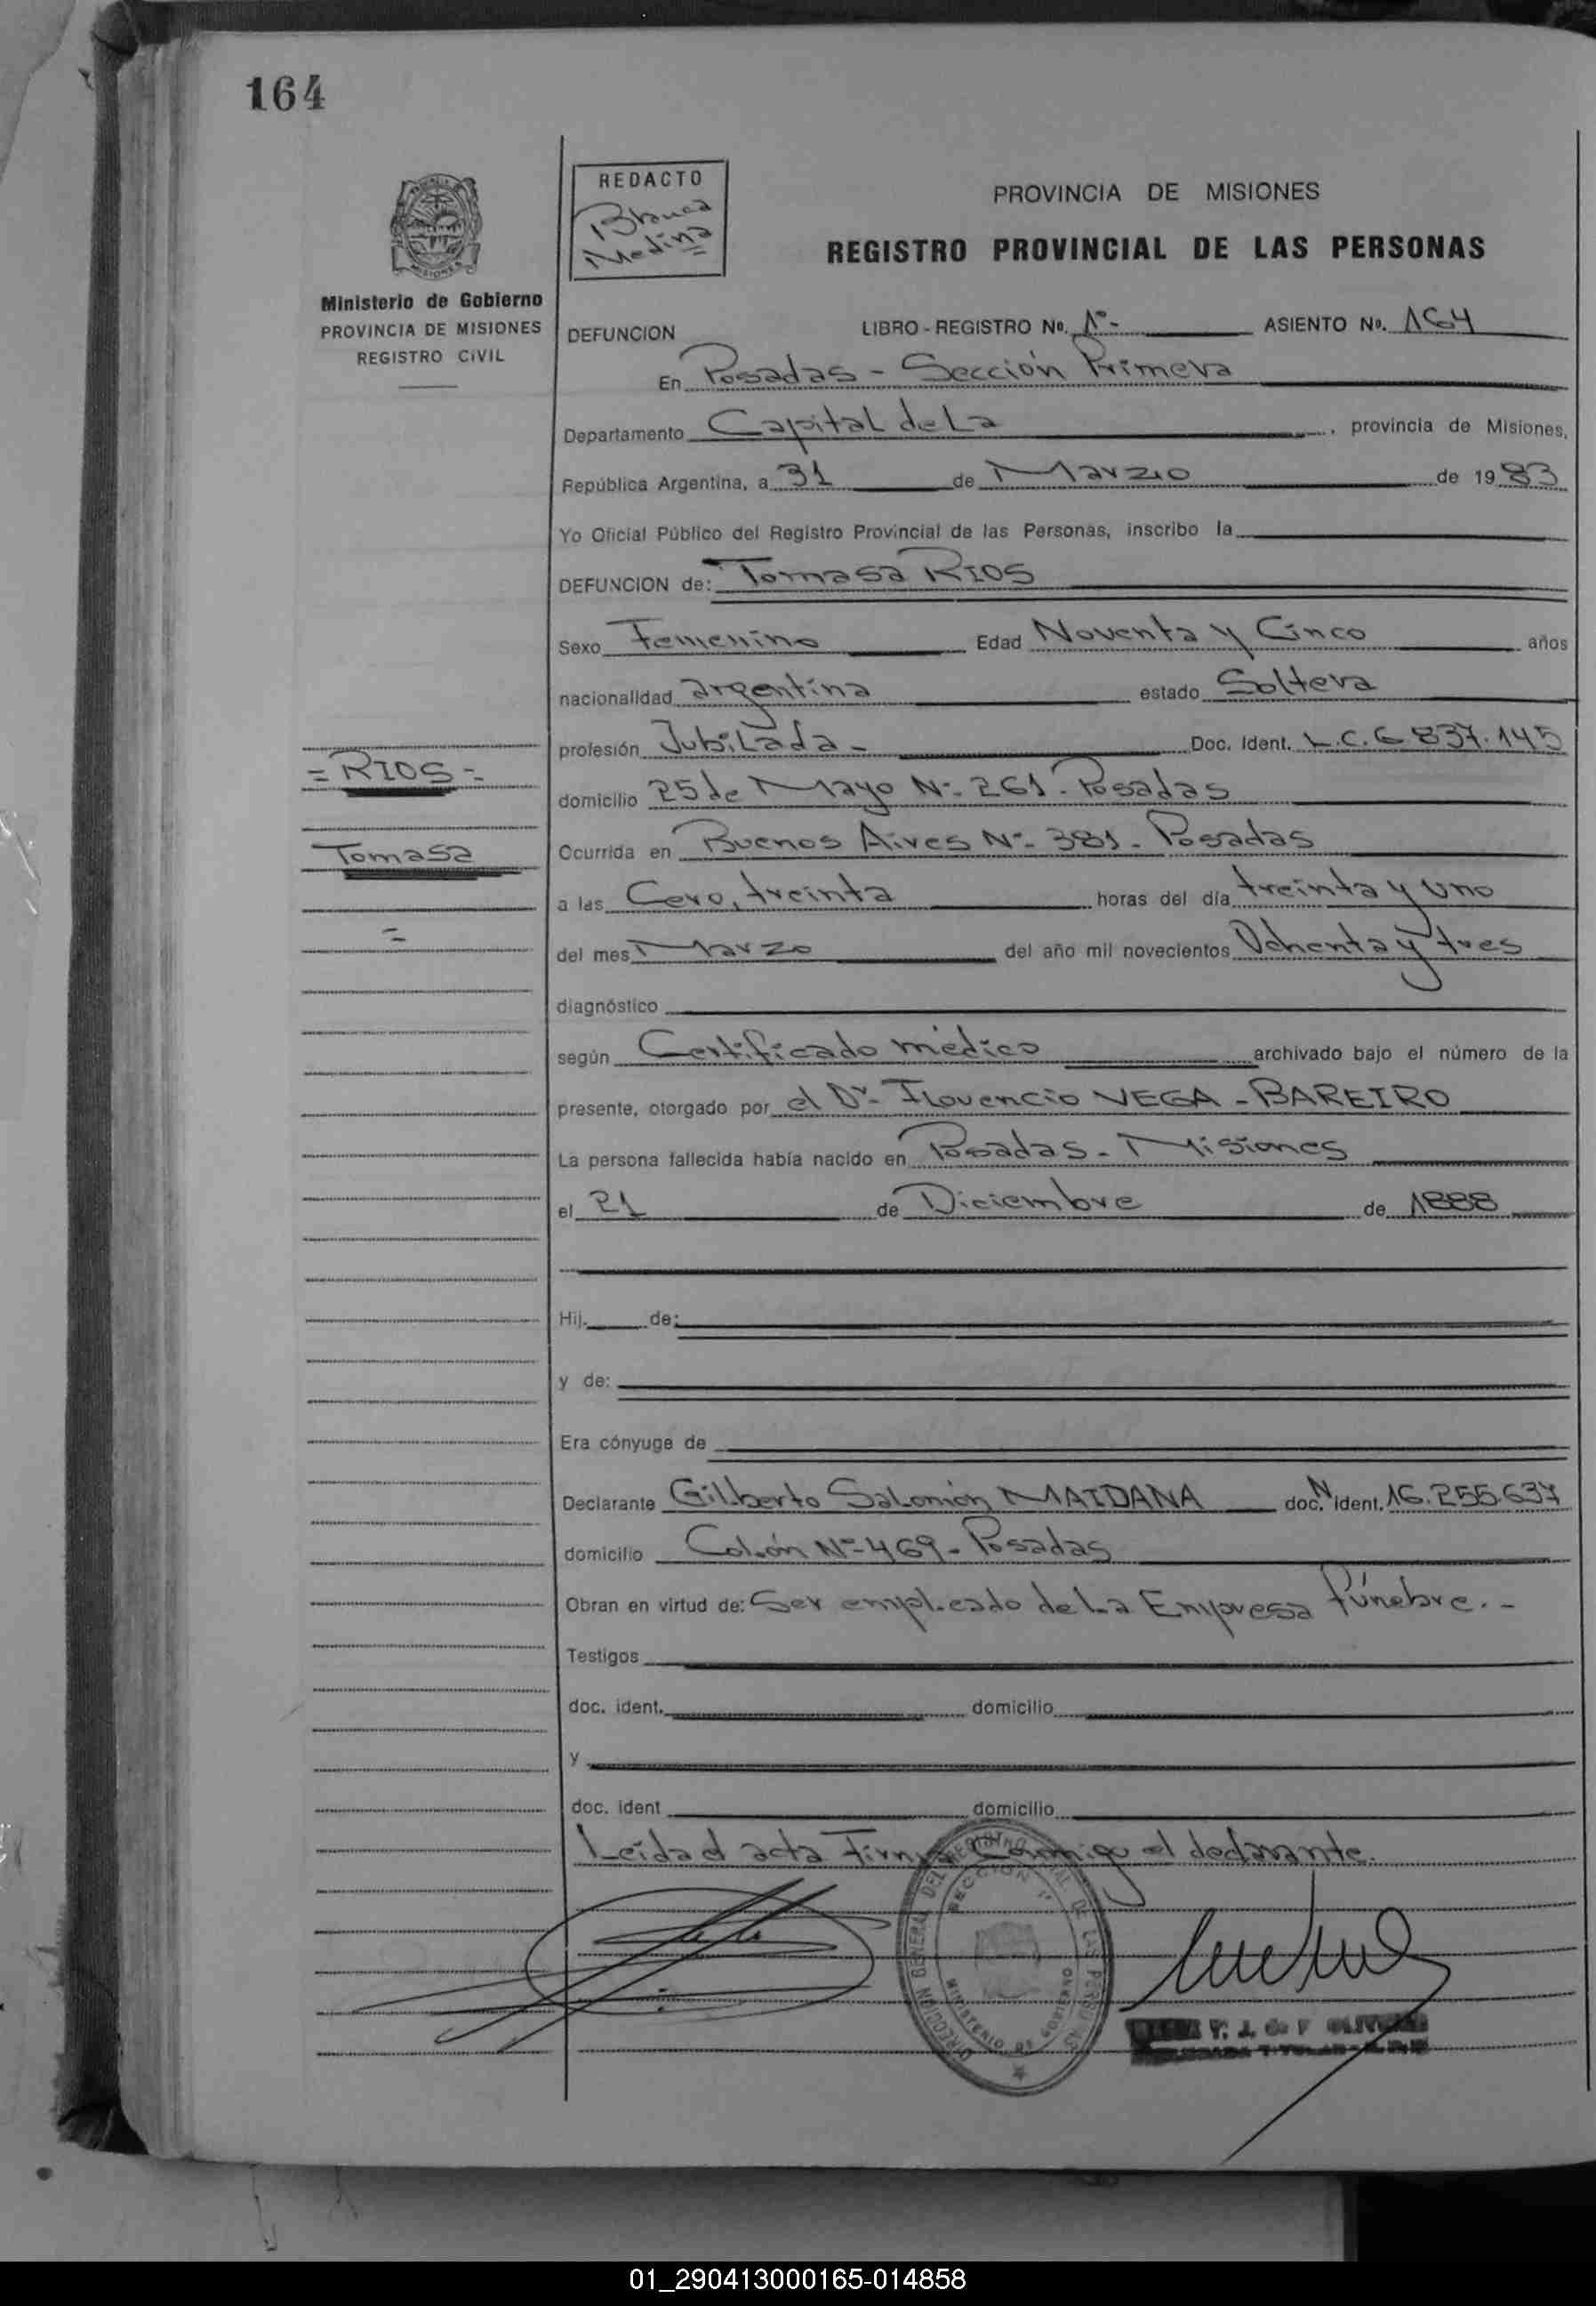 164
REDACTO
Blanca
Medina
PROVINCIA DE MISIONES
REGISTRO PROVINCIAL DE LAS PERSONAS
Ministerio de Gobierno
PROVINCIA DE MISIONES
REGISTRO CIVIL
DEFUNCION LIBRO - REGISTRO No. 1º- ASIENTO No. 164
En Posadas - Sección Primera
Departamento Capital de La , provincia de Misiones,
República Argentina, a 31 de Marzo de 1983
Yo Oficial Público del Registro Provincial de las Personas, inscribo la
DEFUNCION de: Tomasa RIOS
Sexo Femenino Edad Noventa y Cinco años
nacionalidad argentina estado Soltera
profesión Jubilada - Doc. Ident. L.C. 6 837.145
= RIOS =
domicilio 25 de Mayo Nº- 261 - Posadas
Tomasa
Ocurrida en Buenos Aires Nº- 381 - Posadas
a las Cero, treinta horas del día treinta y uno
=
del mes Marzo del año mil novecientos Ochenta y tres
diagnóstico
según Certificado médico archivado bajo el número de la
presente, otorgado por el Dr- Florencio VEGA - BAREIRO
La persona fallecida había nacido en Posadas - Misiones
el 21 de Diciembre de 1888
Hij. de:
y de:
Era cónyuge de
Declarante Gilberto Salomón MAIDANA doc. N ident. 16.255.637
domicilio Colón Nº- 469 - Posadas
Obran en virtud de: Ser empleado de La Empresa fúnebre. -
Testigos
doc. ident. domicilio
y
doc. ident domicilio
Leída el acta Firma Conmigo el declarante.
DIRECCION GENERAL DEL REGISTRO DE LAS PERSONAS
SECCION 1ª
MINISTERIO DE GOBIERNO
01_290413000165-014858